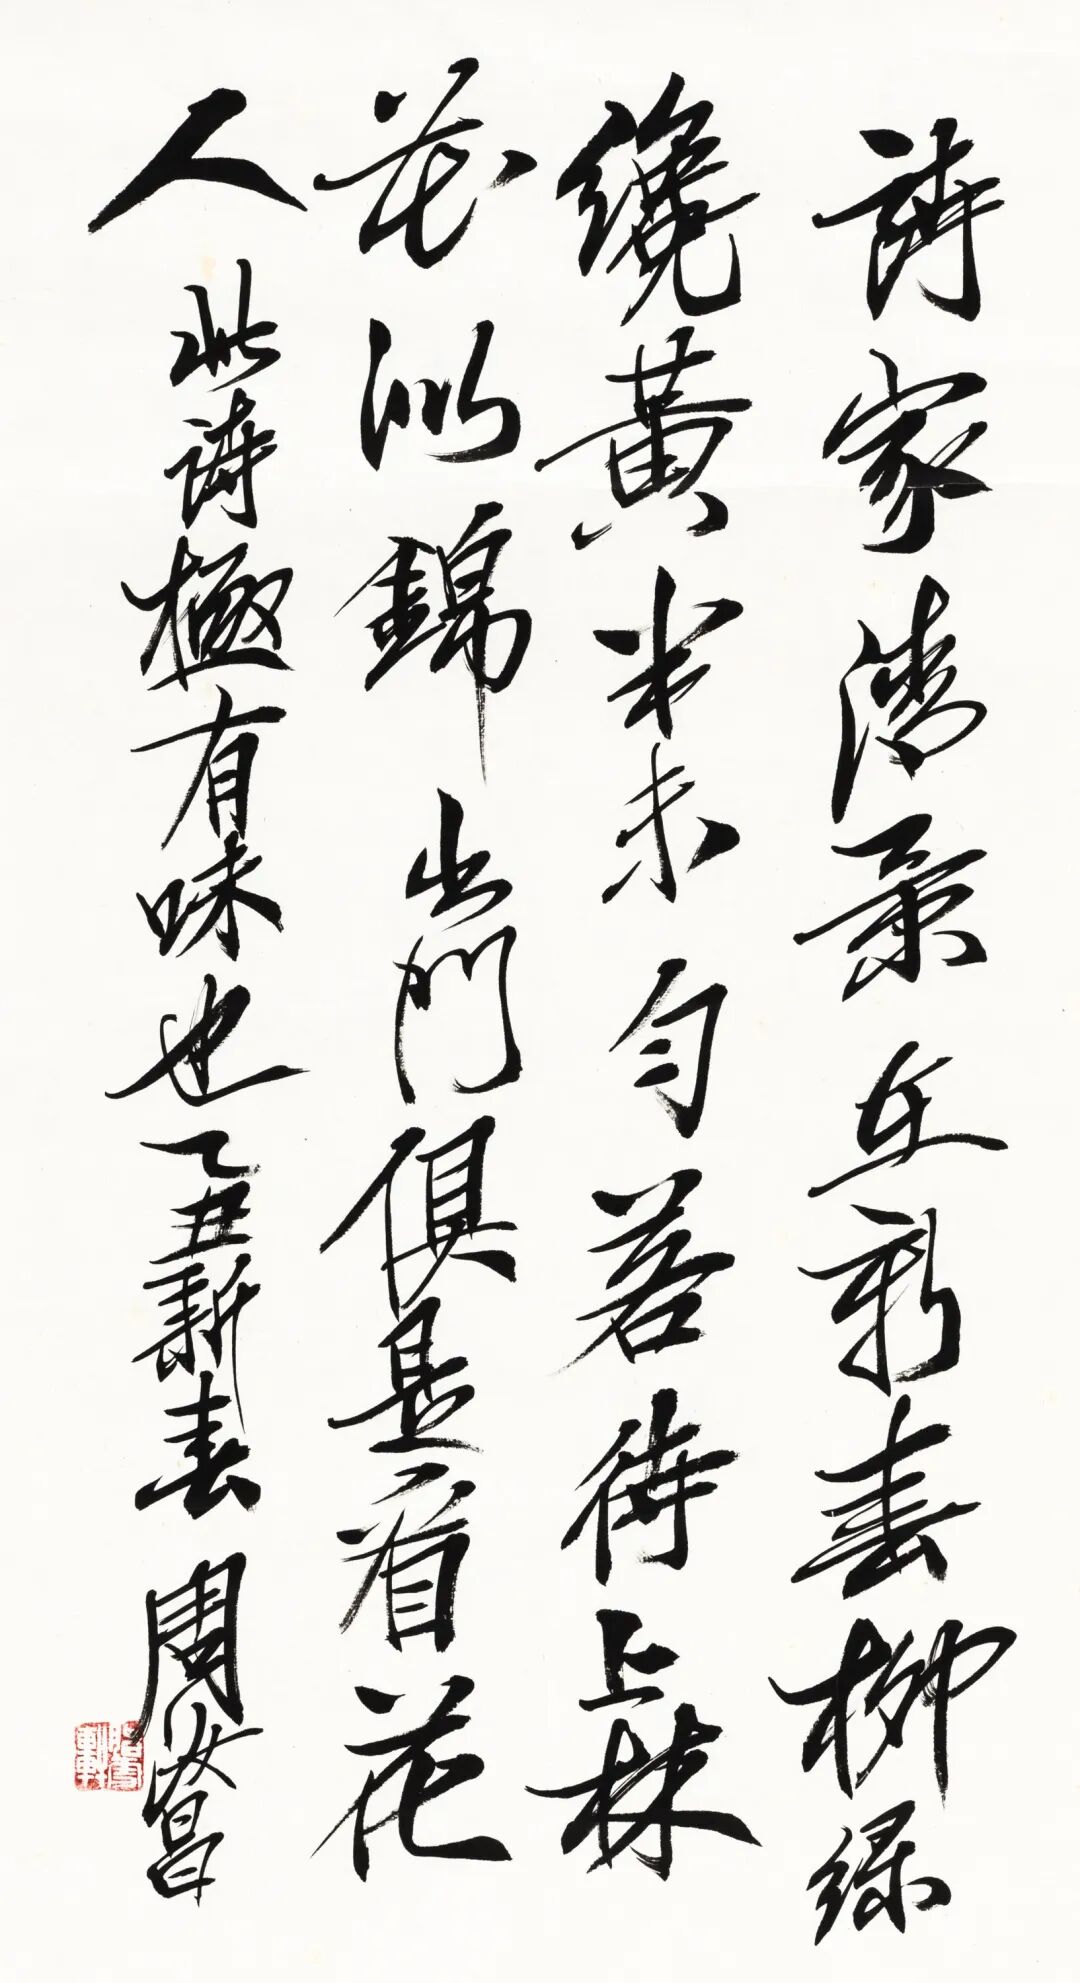 詩家清景在新春柳綠
纔黃半未勻若待上林
花似錦出門俱是看花
人 此詩極有味也乙丑新春 周汝昌
脂雪軒